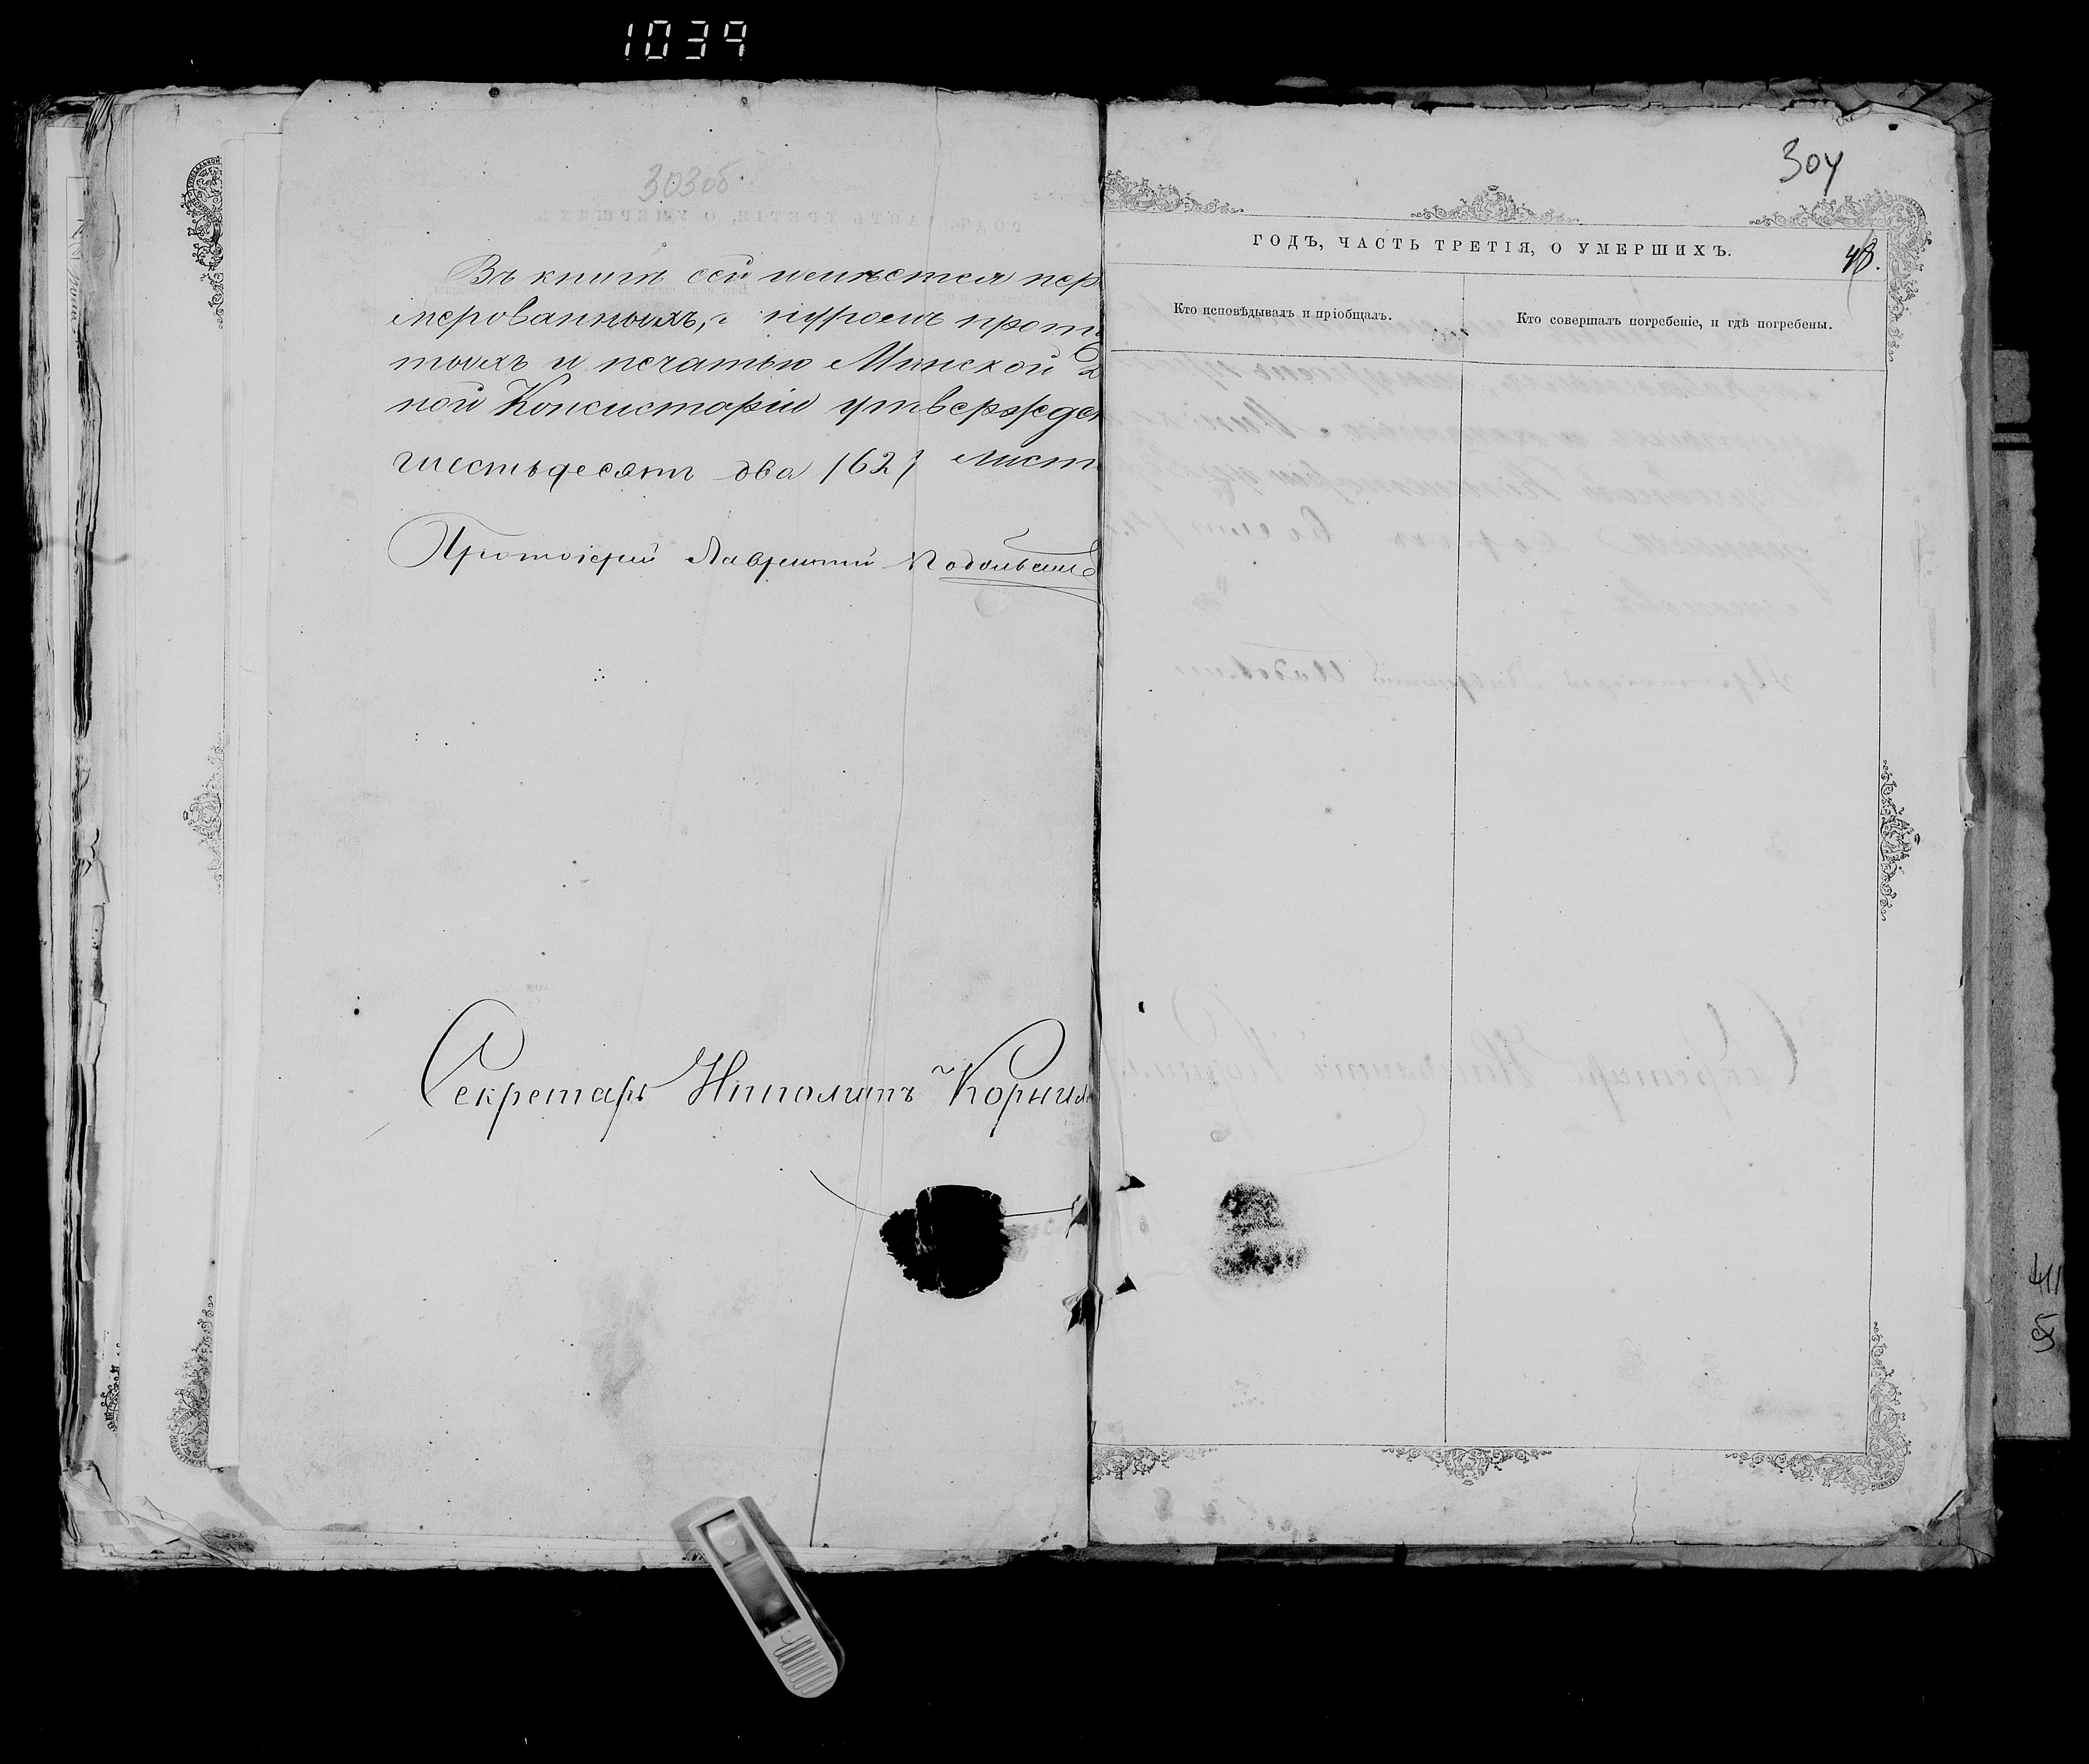 1039
303об
Въ книгѣ сей имѣется нер
мерованныхъ, шнуромъ прот
тыхъ и печатью Минской Д
ной Консисторіи утвержден
шестьдесятъ два /62/ лист
Протоіерей Лаврентій
Секретарь Ипполитъ Корнил
304
ГОДЪ, ЧАСТЬ ТРЕТІЯ, О УМЕРШИХЪ.
48.
Кто исповѣдывалъ и пріобщалъ.
Кто совершалъ погребеніе, и гдѣ погребены.